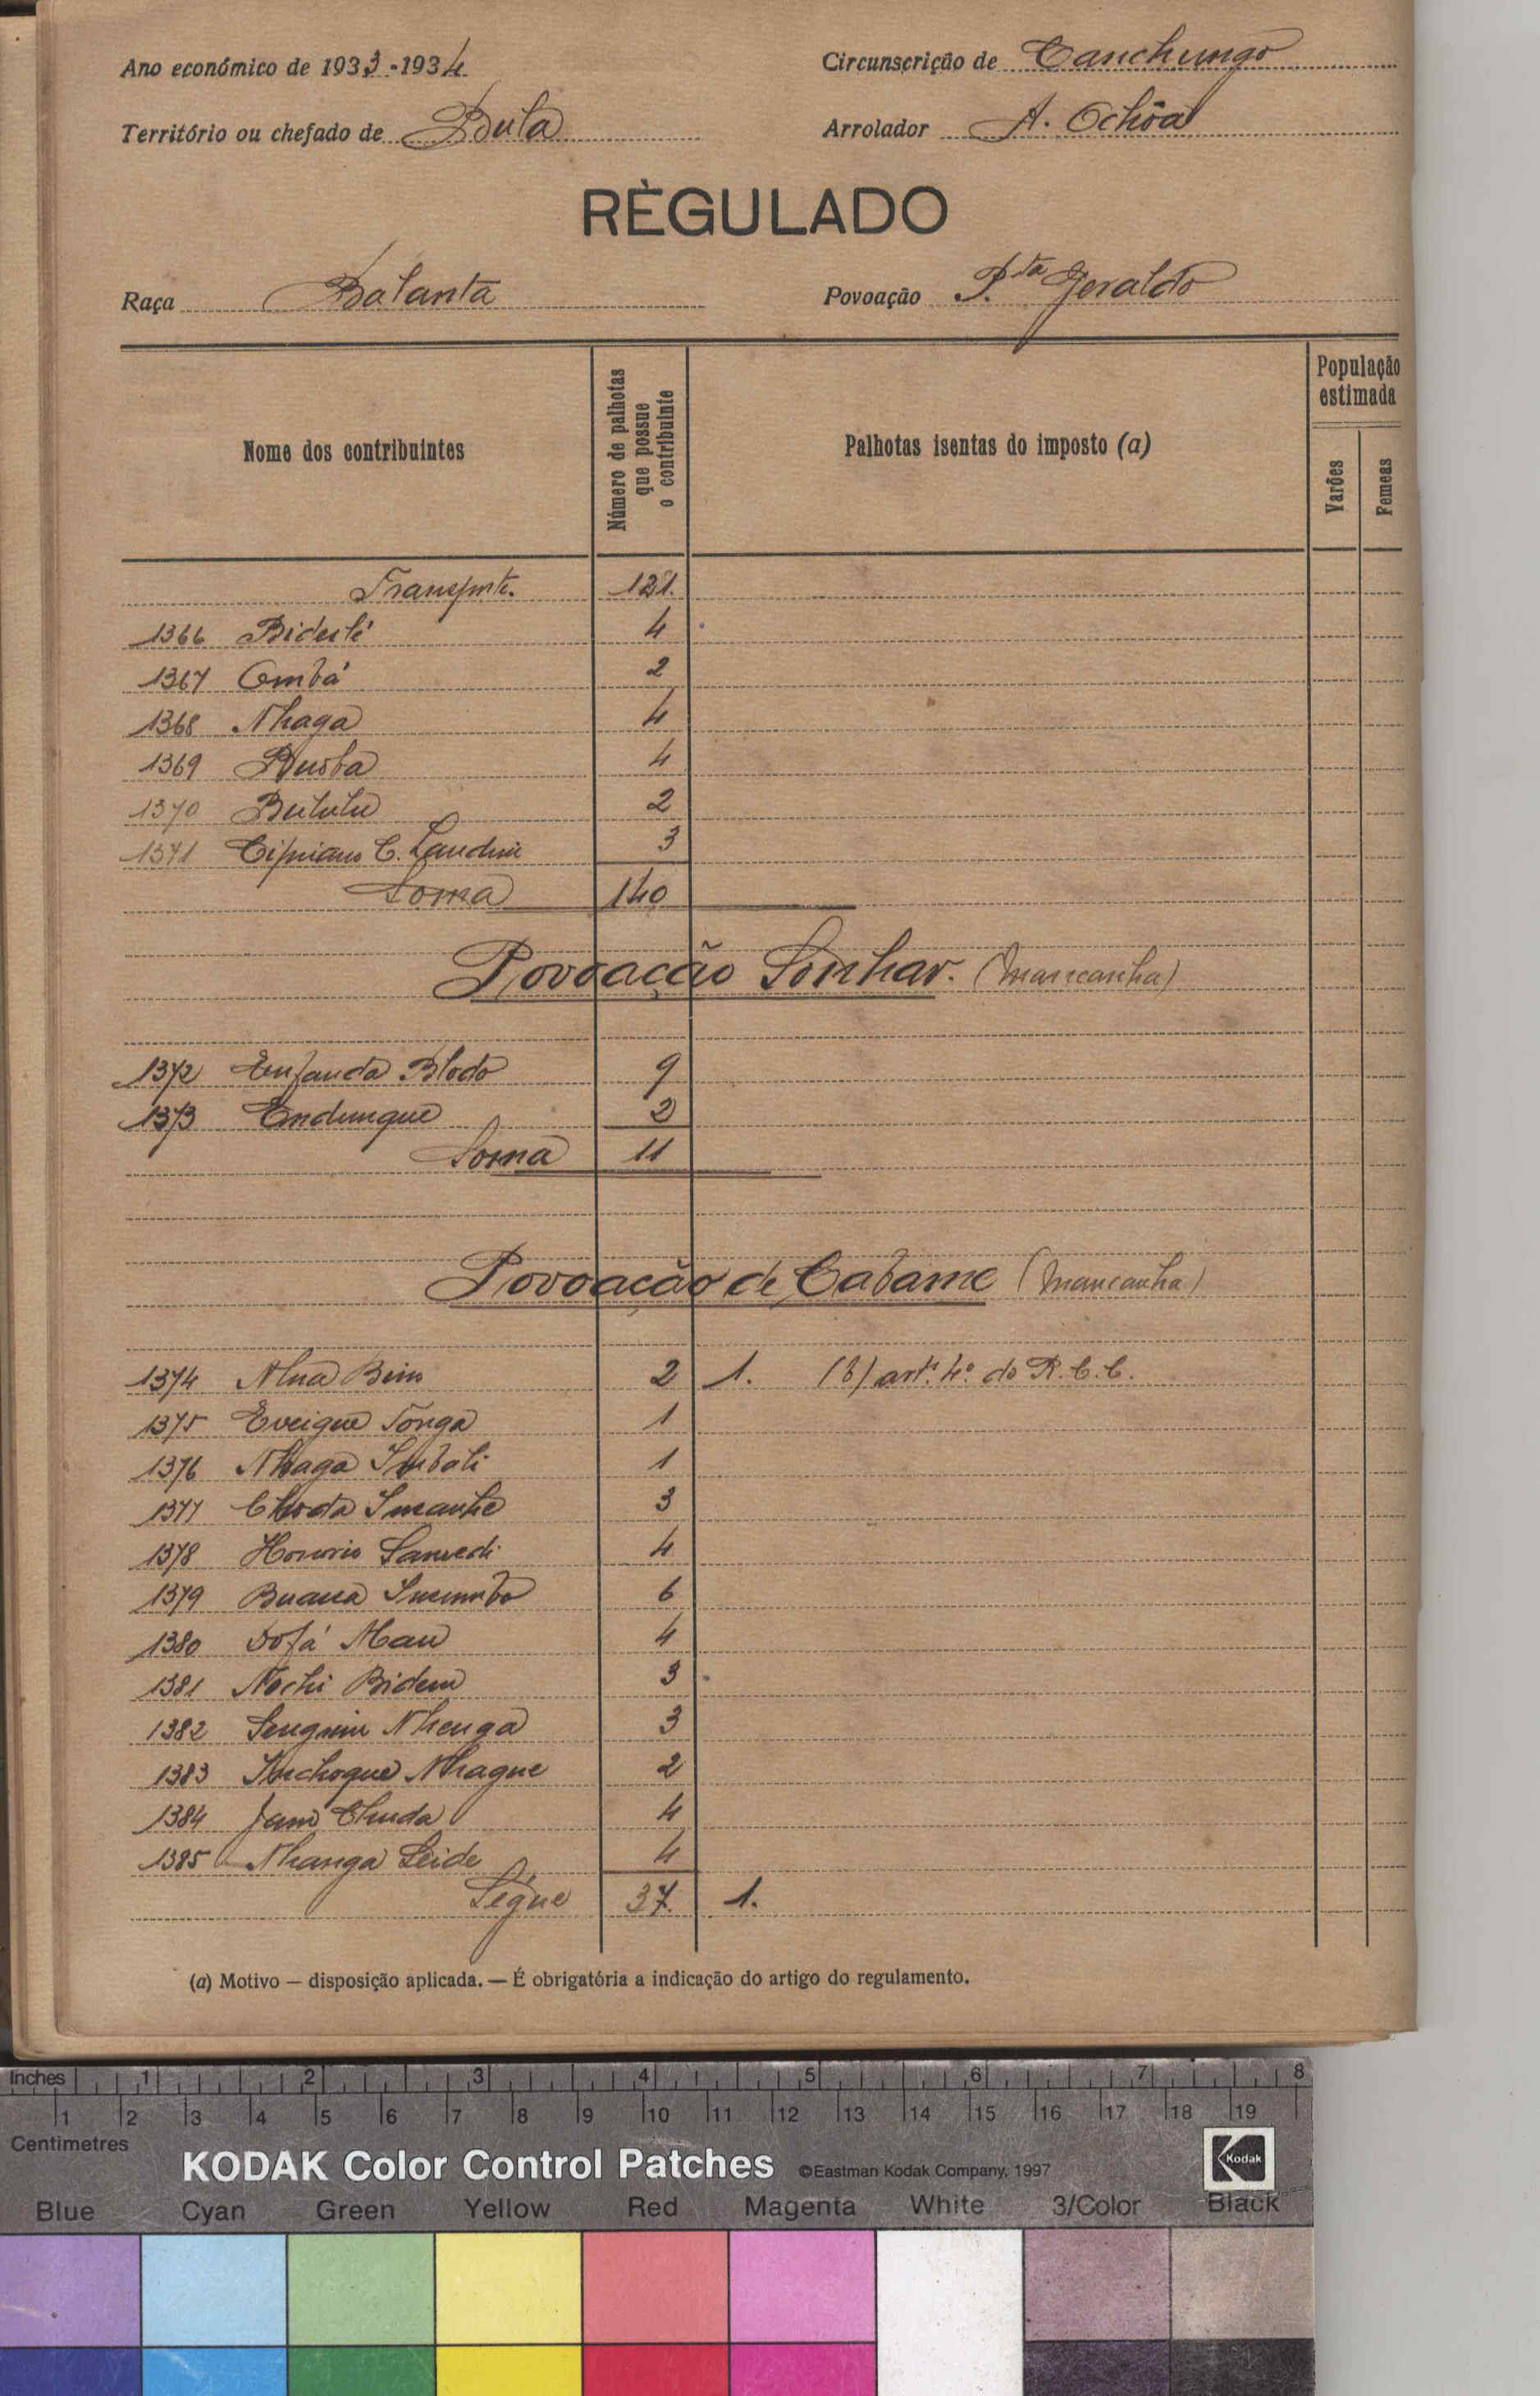 Ano económico de 1933-1934 Circunscrição de Canchungo
Território ou chefado de Bula Arrolador A. Ochôa
RÈGULADO
Raça Balanta Povoação P.ta Geraldo
Nome dos contribuintes
Número de palhotas que possue o contribuinte
Palhotas isentas do imposto (a)
População estimada
Varões
Femeas
Transpte. 121.
1366 4
1367 Ombá 2
1368 Nhaga 4
1369 4
1370 Bututu 2
1371 Cipriano C. Landim 3
Soma 140
Povoação Sonhar. (mancanha)
1372 Enfanda Blodo 9
1373 Endungue 2
Soma 11
Povoação de Cabame (mancanha)
1374 2 1. (b) artº. 4º do R. C. C.
1375 Tonga 1
1376 Nhaga Imbali 1
1377 3
1378 4
1379 6
1380 Dofá Mau 4
1381 Nochi 3
1382 Nhenga 3
1383 Nhague 2
1384 4
1385 Nhanga Leide 4
Segue 37. 1.
(a) Motivo — disposição aplicada. — É obrigatória a indicação do artigo do regulamento.
Inches 1 2 3 4 5 6 7 8
1 2 3 4 5 6 7 8 9 10 11 12 13 14 15 16 17 18 19
Centimetres
KODAK Color Control Patches ©Eastman Kodak Company, 1997 Kodak
Blue Cyan Green Yellow Red Magenta White 3/Color Black